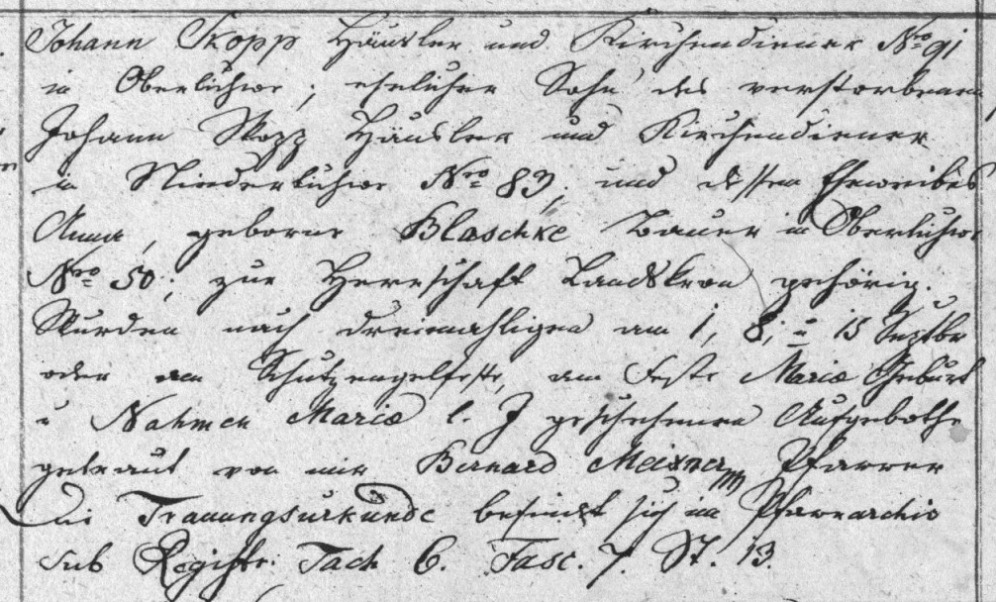 Johann Skopp Häusler und Kirchendiener Nro 91
in Oberlichwe; ehelicher Sohn des verstorbenen
Johann Skopp Häusler und Kirchendiener
in Niederlichwe Nro 83, und dessen Eheweibes
Anna, geborne Blaschke Bauer in Oberlichwe
Nro 50; zur Herrschaft Landskron gehörig.
Wurden nach dreimahligen am 1, 8, u 15 Septbr
oder am Schutzengelfeste, am Feste Mariä Geburt
u Nahmen Mariä l. J geschehenen Aufgebothe
getraut von mir Bernard Meixner Pfarrer
Die Trauungsurkunde befindet sich im Pfarrarchiv
sub Registr. Fach 6. Fasc. 7. St. 13.